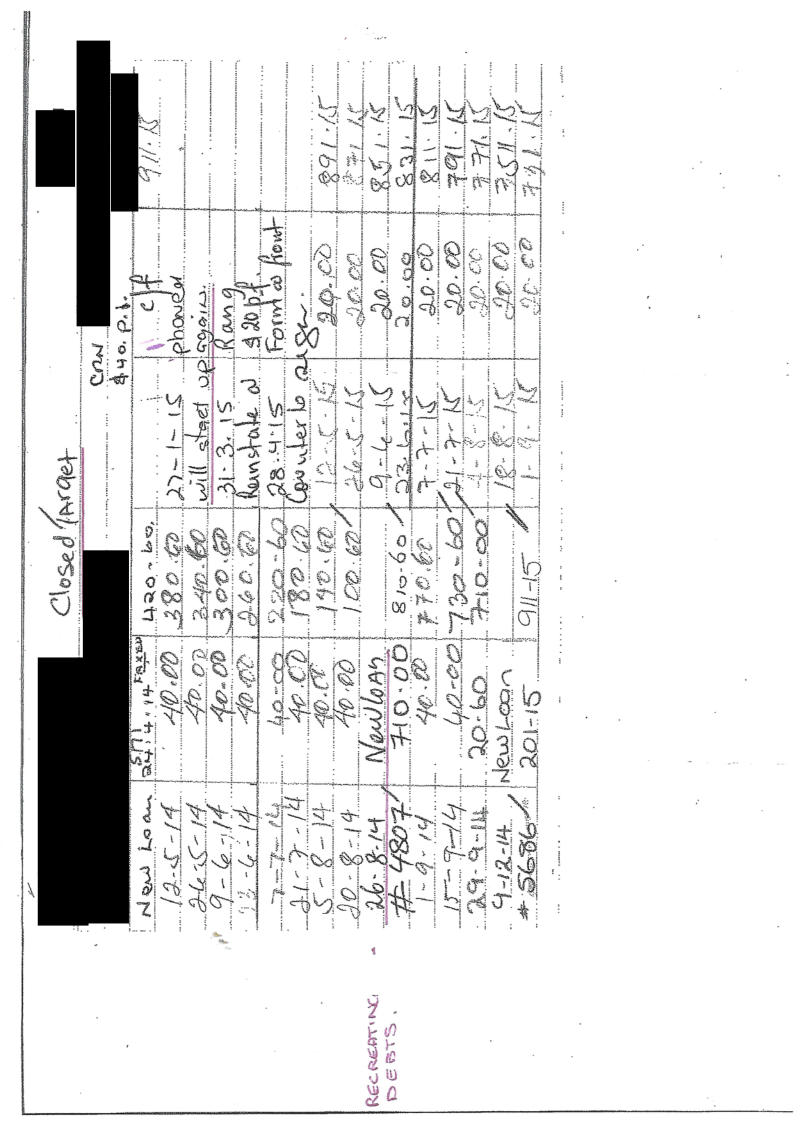 Closed Target
CRN
$40. P.f.
New Loan 24.4.14 FAXED 420-60. C/f 911.15
12-5-14 40.00 380.60 27-1-15 phoned
26-5-14 40.00 340.60 will start up again.
9-6-14 40.00 300.60 31-3.15 Rang
23-6-14 40.00 260.60 Reinstate @ $20 p.f.
7-7-14 40-00 220-60 28.4.15 Form @ front
21-7-14 40.00 180.60 Counter to sign.
5-8-14 40.00 140.60 12-5-15 20.00 891.15
20-8-14 40.00 100.60 / 26-5-15 20.00 871.15
20-8-14 New Loan 9-6-15 20.00 851.15
#4807 / 710.00 810-60 / 23.6.15 20.00 831.15
1-9-14 40.00 770.60 7-7-15 20.00 811.15
15-9-14 40-00 730-60 / 21-7-15 20.00 791.15
29.9-14 20.60 710-00 4-8-15 20.00 771.15
9-12-14 New Loan 18-8-15 20.00 751.15
#5686 / 201-15 911-15 / 1-9.15 20.00 731.15
RECREATING
DEBTS.